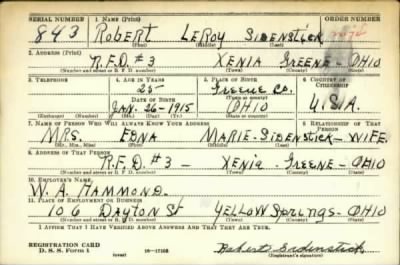 SERIAL NUMBER 1. NAME (Print) ORDER NUMBER
843 ROBERT LEROY SIDENSTICK
(First) (Middle) (Last)
2. ADDRESS (Print)
R.F.D. #3 XENIA GREENE - OHIO
(Number and street or R. F. D. number) (Town) (County) (State)
3. TELEPHONE 4. AGE IN YEARS 5. PLACE OF BIRTH 6. COUNTRY OF CITIZENSHIP
25 - GREENE CO.
DATE OF BIRTH (Town or county)
JAN. 26 - 1915 OHIO U.S.A.
(Exchange) (Number) (Mo.) (Day) (Yr.) (State or country)
7. NAME OF PERSON WHO WILL ALWAYS KNOW YOUR ADDRESS 8. RELATIONSHIP OF THAT PERSON
MRS. EDNA MARIE - SIDENSTICK - WIFE.
(Mr., Mrs., Miss) (First) (Middle) (Last)
9. ADDRESS OF THAT PERSON
R.F.D. #3 - XENIA - GREENE - OHIO
(Number and street or R. F. D. number) (Town) (County) (State)
10. EMPLOYER'S NAME
W. A. HAMMOND
11. PLACE OF EMPLOYMENT OR BUSINESS
106 DAYTON ST YELLOW SPRINGS - OHIO
(Number and street or R. F. D. number) (Town) (County) (State)
I AFFIRM THAT I HAVE VERIFIED ABOVE ANSWERS AND THAT THEY ARE TRUE.
REGISTRATION CARD
D. S. S. Form 1 (over) Robert Sidenstick
(Registrant's signature)